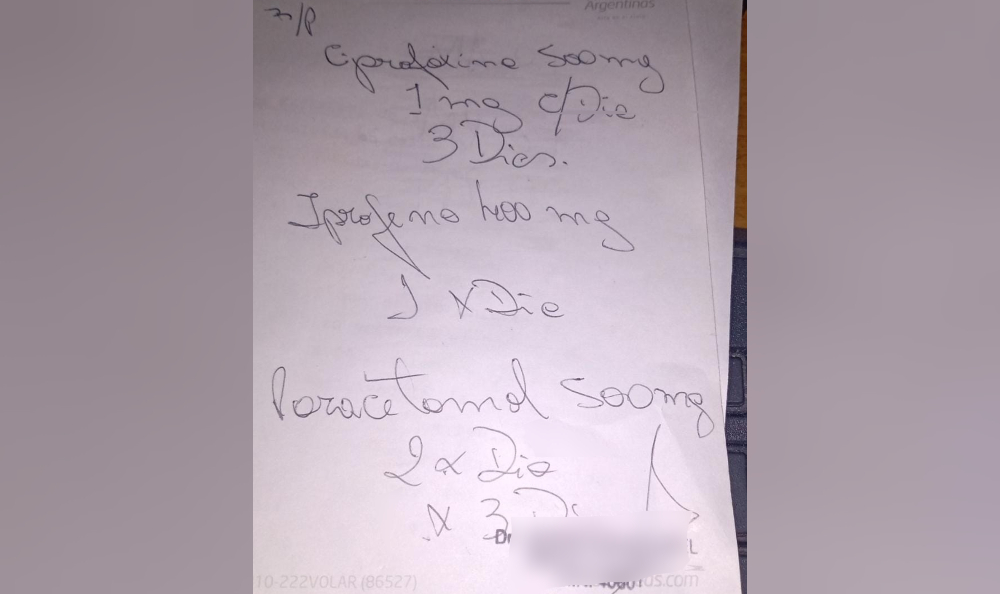 Argentinos
R/P
Ciprofoxina 500mg
1 mg c/Dia
3 Dias.
Iprofeno 400 mg
1 x Dia
Paracetamol 500mg
2 x Dia
x 3 Di
Dr
L
10-222VOLAR (86527)
us.com